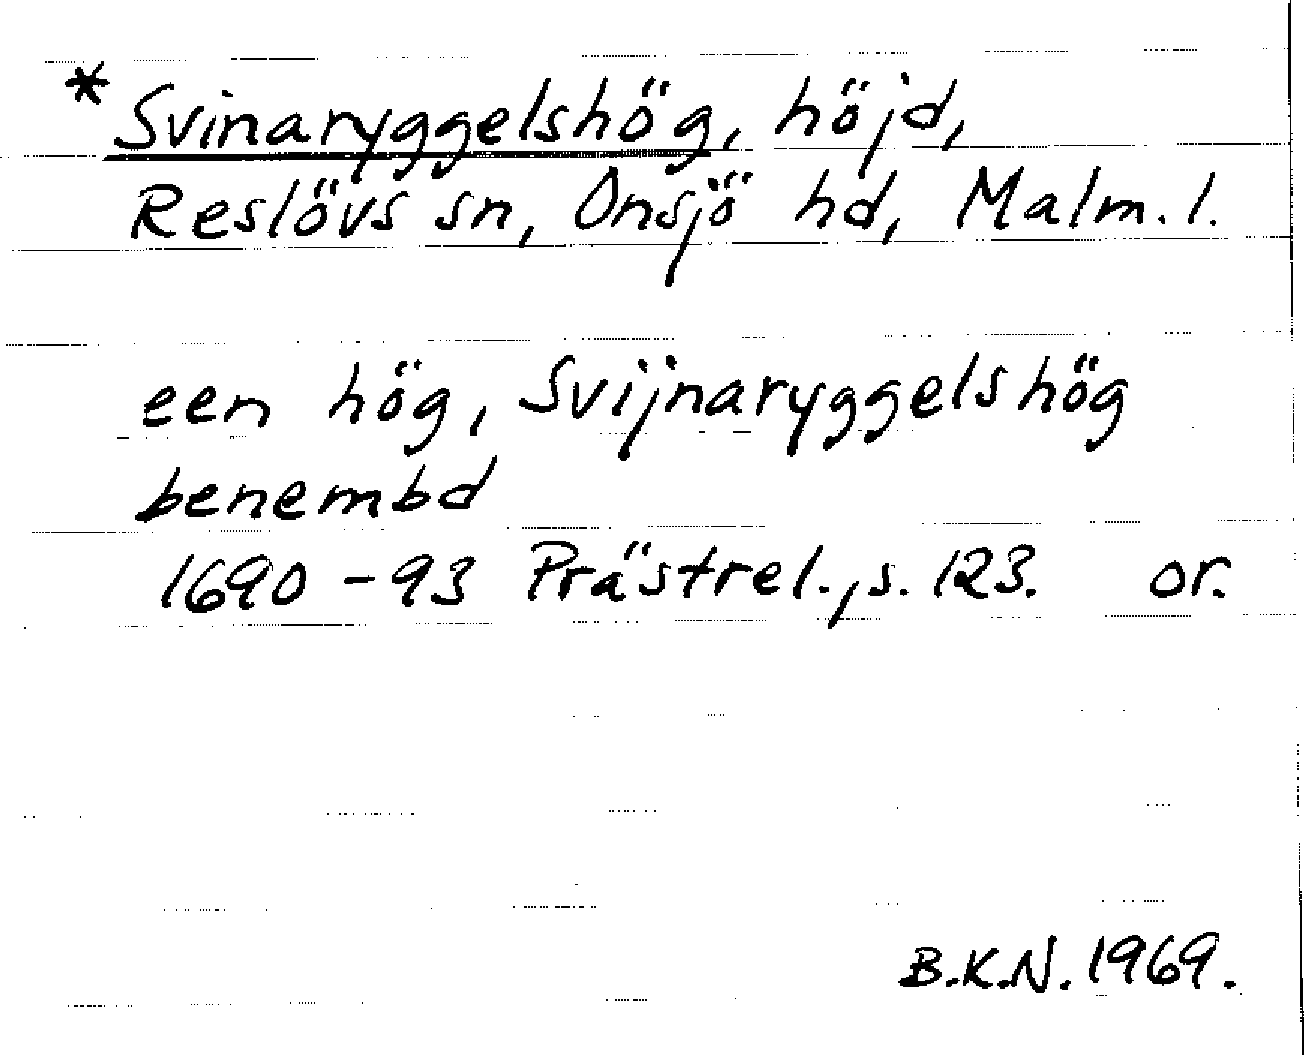 * Svinaryggelshög, höjd,
Reslövs sn, Onsjö hd, Malm. l.
een hög, Svijnaryggelshög
benembd
1690-93 Prästrel., s. 123. or.
B.K.N. 1969.